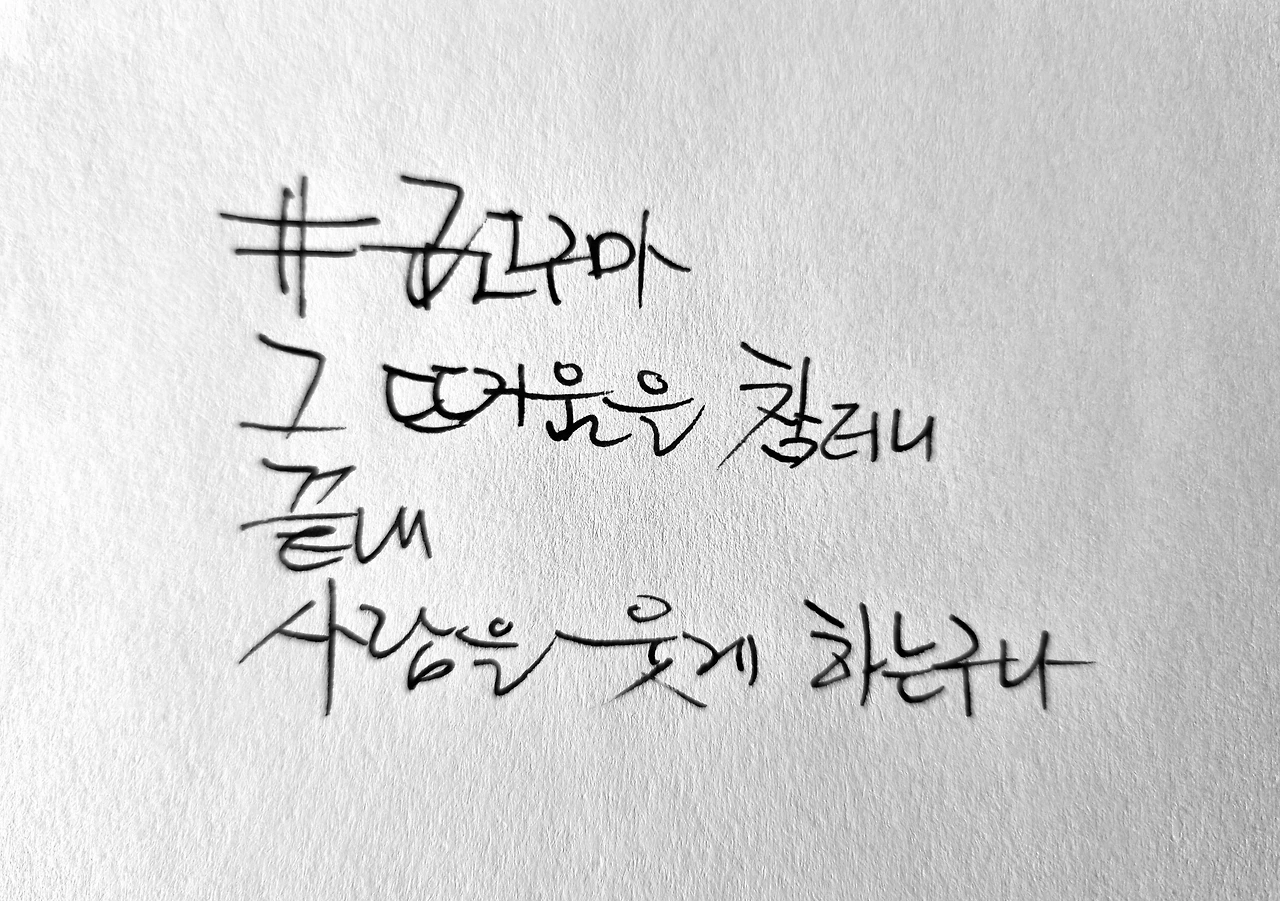 #군고구마
그 뜨거움을 참더니
끝내
사람을 웃게 하는구나